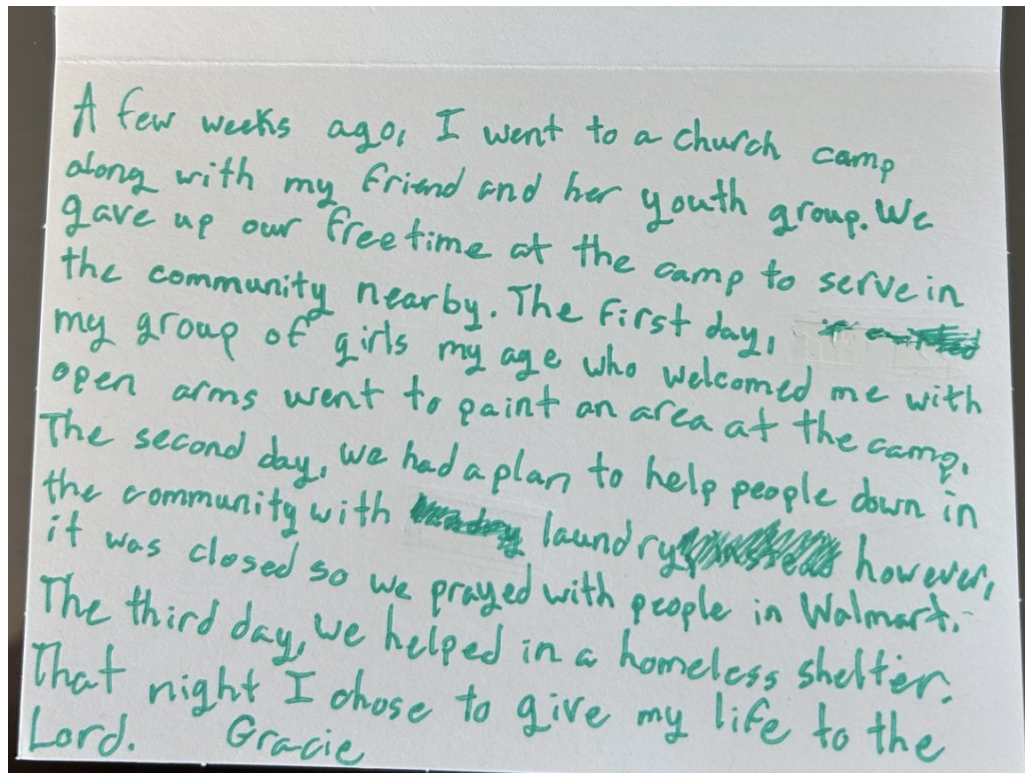 A few weeks ago, I went to a church camp
along with my friend and her youth group. We
gave up our free time at the camp to serve in
the community nearby. The first day,
my group of girls my age who welcomed me with
open arms went to paint an area at the camp.
The second day, we had a plan to help people down in
the community with laundry however,
it was closed so we prayed with people in Walmart.
The third day, we helped in a homeless shelter.
That night I chose to give my life to the
Lord. Gracie